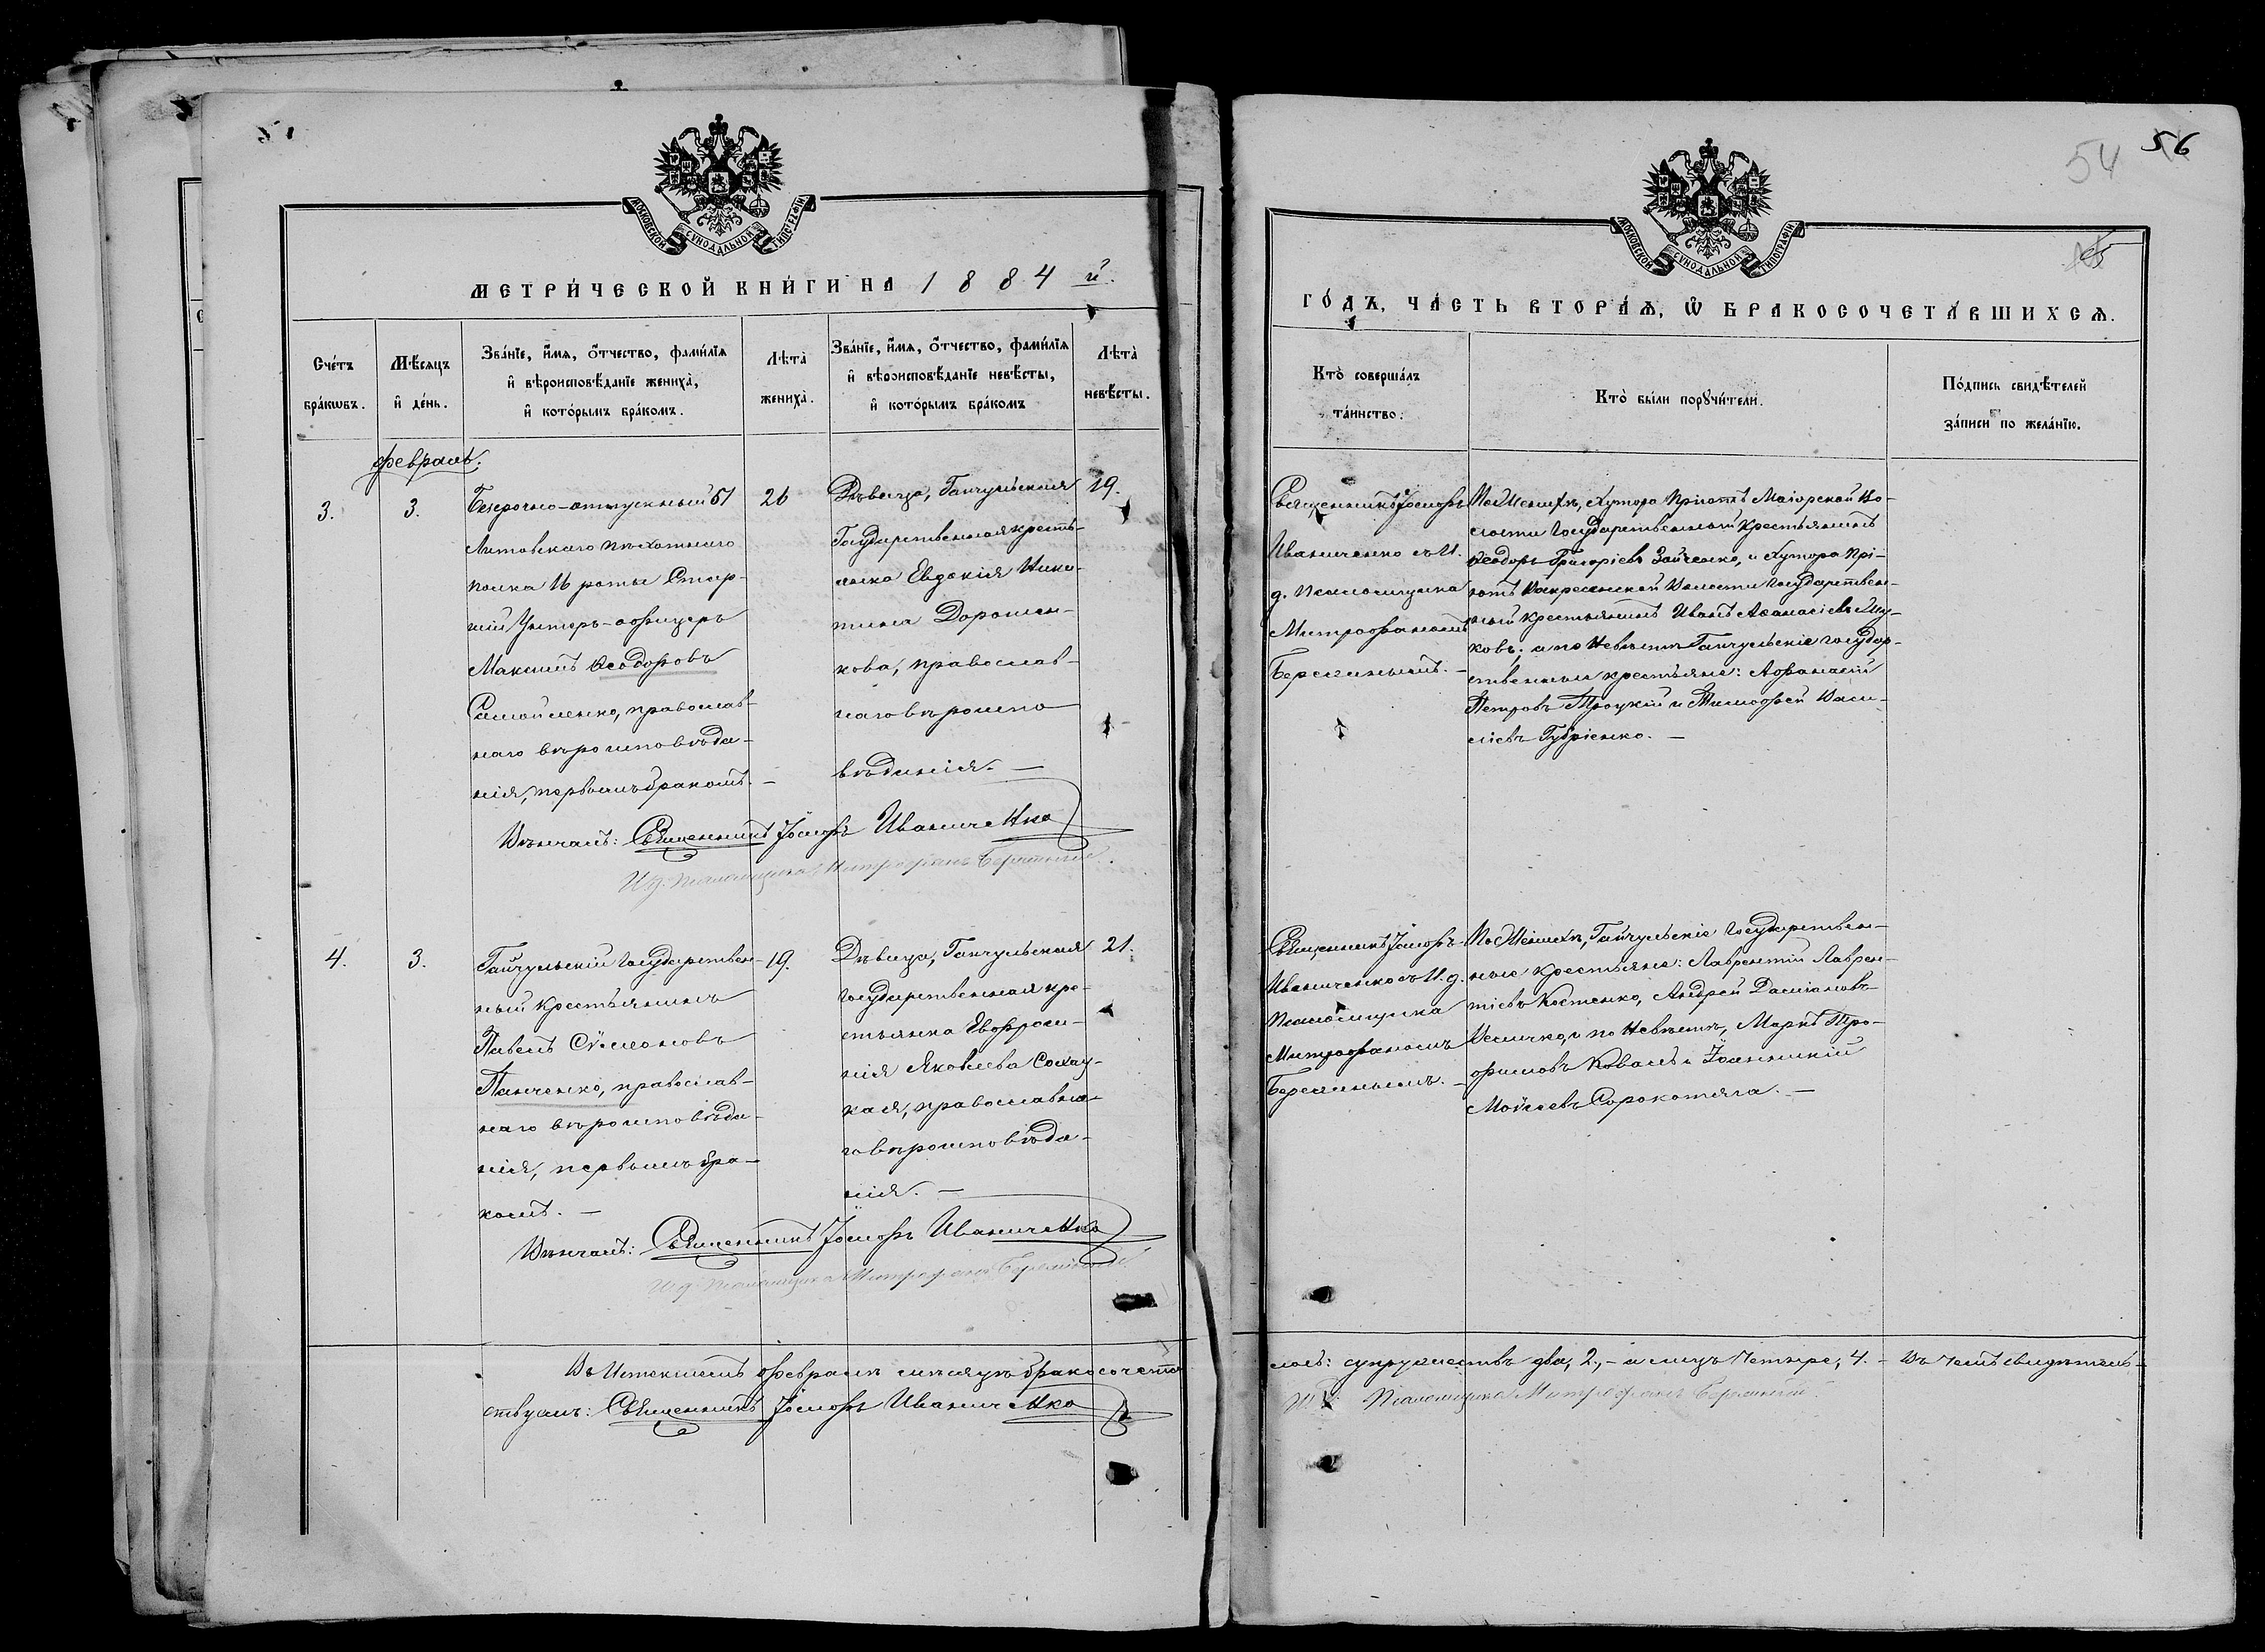 МОСКОВСКОЙ СѴНОДАЛЬНОЙ ТИПОГРАФІИ
МЕТРИ́ЧЕСКОЙ КНИ́ГИ НА 1884 й.
Сче́тъ бра́кѡвъ.
Мѣ́сяцъ и҆ де́нь.
Зва́нїе, и҆́мѧ, ѻ҆́тчество, фами́лїѧ
и҆ вѣроисповѣ́данїе жениха̀,
и҆ кото́рымъ бра́комъ.
Лѣта̀
жениха̀.
Зва́нїе, и҆́мѧ, ѻ҆́тчество, фами́лїѧ
и҆ вѣроисповѣ́данїе невѣ́сты,
и҆ кото́рымъ бра́комъ
Лѣта̀
невѣ́сты.
февраль.
3.
3.
Безсрочно-отпускный 51
Литовскаго пѣхотнаго
полка 16 роты Стар-
шій Унтеръ-офицеръ
Максимъ Ѳеодоровъ
Самойленко, православ-
наго вѣроисповѣда-
нія, первымъ бракомъ. —
26
Дѣвица, Гайчульская
Государственная кресть-
янка Евдокія Ники-
тина Дорошен-
кова, православ-
наго вѣроиспо-
вѣданія. —
19.
Вѣнчалъ: Священникъ Іосифъ Иваниченко
И. д. псаломщика Митрофанъ
4.
3.
Гайчульскій Государствен-
ный крестьянинъ
Павелъ Сѷмеоновъ
Панченко, православ-
наго вѣроисповѣда-
нія, первымъ бра-
комъ. —
19.
Дѣвица, Гайчульская
государственная кре-
стьянка Евфроси-
нія Яковлева
православна-
го вѣроисповѣда-
нія. —
21.
Вѣнчалъ: Священникъ Іосифъ Иваниченко
И. д. псаломщика Митрофанъ
Въ истекшемъ февралѣ мѣсяцѣ бракосочета-
ствуемъ: Священникъ Іосифъ Иваниченко
54
56
МОСКОВСКОЙ СѴНОДАЛЬНОЙ ТИПОГРАФІИ
ГО́ДЪ, ЧА́СТЬ ВТОРА́Ѧ, Ѡ҆ БРАКОСОЧЕТА́ВШИХСѦ.
Кто̀ соверша́лъ
та́инство.
Кто̀ бы́ли порꙋчи́тели.
По́дпись свидѣ́телей
за́писи по жела́нїю.
Священникъ Іосифъ
Иваниченко съ И.
д. псаломщика
Митрофаномъ
По Женихѣ, Хутора Пріютъ Маіорской Во-
лости Государственный Крестьянинъ
Ѳеодоръ Григоріевъ Зайченко, и Хутора Прі-
ютъ Воскресенской Волости Государствен-
ный крестьянинъ Иванъ Аѳанасіевъ
ковъ; а по Невѣстѣ Гайчульскіе государ-
ственные крестьяне: Афанасій
Петровъ Троцкій и Тимофей Васи-
ліевъ Губріенко. —
Священникъ Іосифъ
Иваниченко съ И. д.
псаломщика
Митрофаномъ
По Женихѣ, Гайчульскіе Государствен-
ные крестьяне: Лаврентій Лаврен-
тіевъ Костенко, Андрей Даміановъ
и по Невѣстѣ, Маркъ Тро-
фимовъ Коваль и Іоанникій
Моѷсеевъ Сорокотяга. —
лось: супружествъ два, 2, — а лицъ четыре, 4. — Въ чемъ свидѣтель-
И. д. Псаломщика Митрофанъ